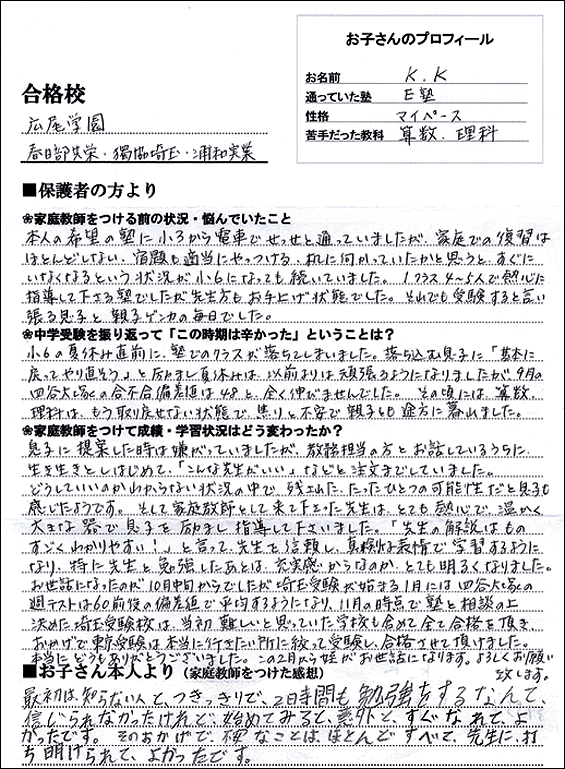 お子さんのプロフィール
お名前 K.K
通っていた塾 E塾
性格 マイペース
苦手だった教科 算数、理科
合格校
広尾学園
春日部共栄・獨協埼玉・浦和実業
■保護者の方より
❀家庭教師をつける前の状況・悩んでいたこと
本人の希望の塾に小3から電車でせっせと通っていましたが、家庭での復習は
ほとんどしない、宿題も適当にやっつける、机に向かっていたかと思うと、すぐに
いなくなるという状況が小6になっても続いていました。1クラス4~5人で熱心に
指導して下さる塾でしたが先生方もお手上げ状態でした。それでも受験すると言い
張る息子と親子ゲンカの毎日でした。
❀中学受験を振り返って「この時期は辛かった」ということは?
小6の夏休み直前に、塾でのクラスが落ちてしまいました。落ち込む息子に「基本に
戻ってやり直そう」と励まし夏休みは、以前よりは頑張るようになりましたが9月の
四谷大塚の合不合偏差値は48と、全く伸びませんでした。その頃には、算数、
理科は、もう取り戻せない状態で、焦りと不安で親子とも途方に暮れました。
❀家庭教師をつけて成績・学習状況はどう変わったか?
息子に提案した時は嫌がっていましたが、教務担当の方とお話しているうちに、
生き生きとしはじめて、「こんな先生がいい」などと注文までしていました。
どうしていいのかわからない状況の中で、残された、たったひとつの可能性だと息子も
感じたようです。そして家庭教師として来て下さった先生は、とても熱心で、温かく
大きな器で息子を励まし指導して下さいました。「先生の解説はもの
すごくわかりやすい!」と言って、先生を信頼し、真剣な表情で学習するように
なり、特に先生と勉強したあとは、充実感からなのか、とても明るくなりました。
お世話になったのが10月中旬からでしたが埼玉受験が始まる1月には四谷大塚の
週テストは60前後の偏差値で平均するようになり、11月の時点で塾と相談の上
決めた埼玉受験校は、当初難しいと思っていた学校も含めて全て合格を頂き、
おかげで東京受験は本当に行きたい所に絞って受験し、合格させて頂けました。
本当にどうもありがとうございました。この2月から妹がお世話になります。よろしくお願い
致します。
■お子さん本人より(家庭教師をつけた感想)
最初は知らない人と、つきっきりで、2時間も勉強をするなんて、
信じられなかったけれど、始めてみると、意外と、すぐなれて、よ
かったです。そのおかげで、不安なことは、ほとんどすべて、先生に、打
ち明けられて、よかったです。